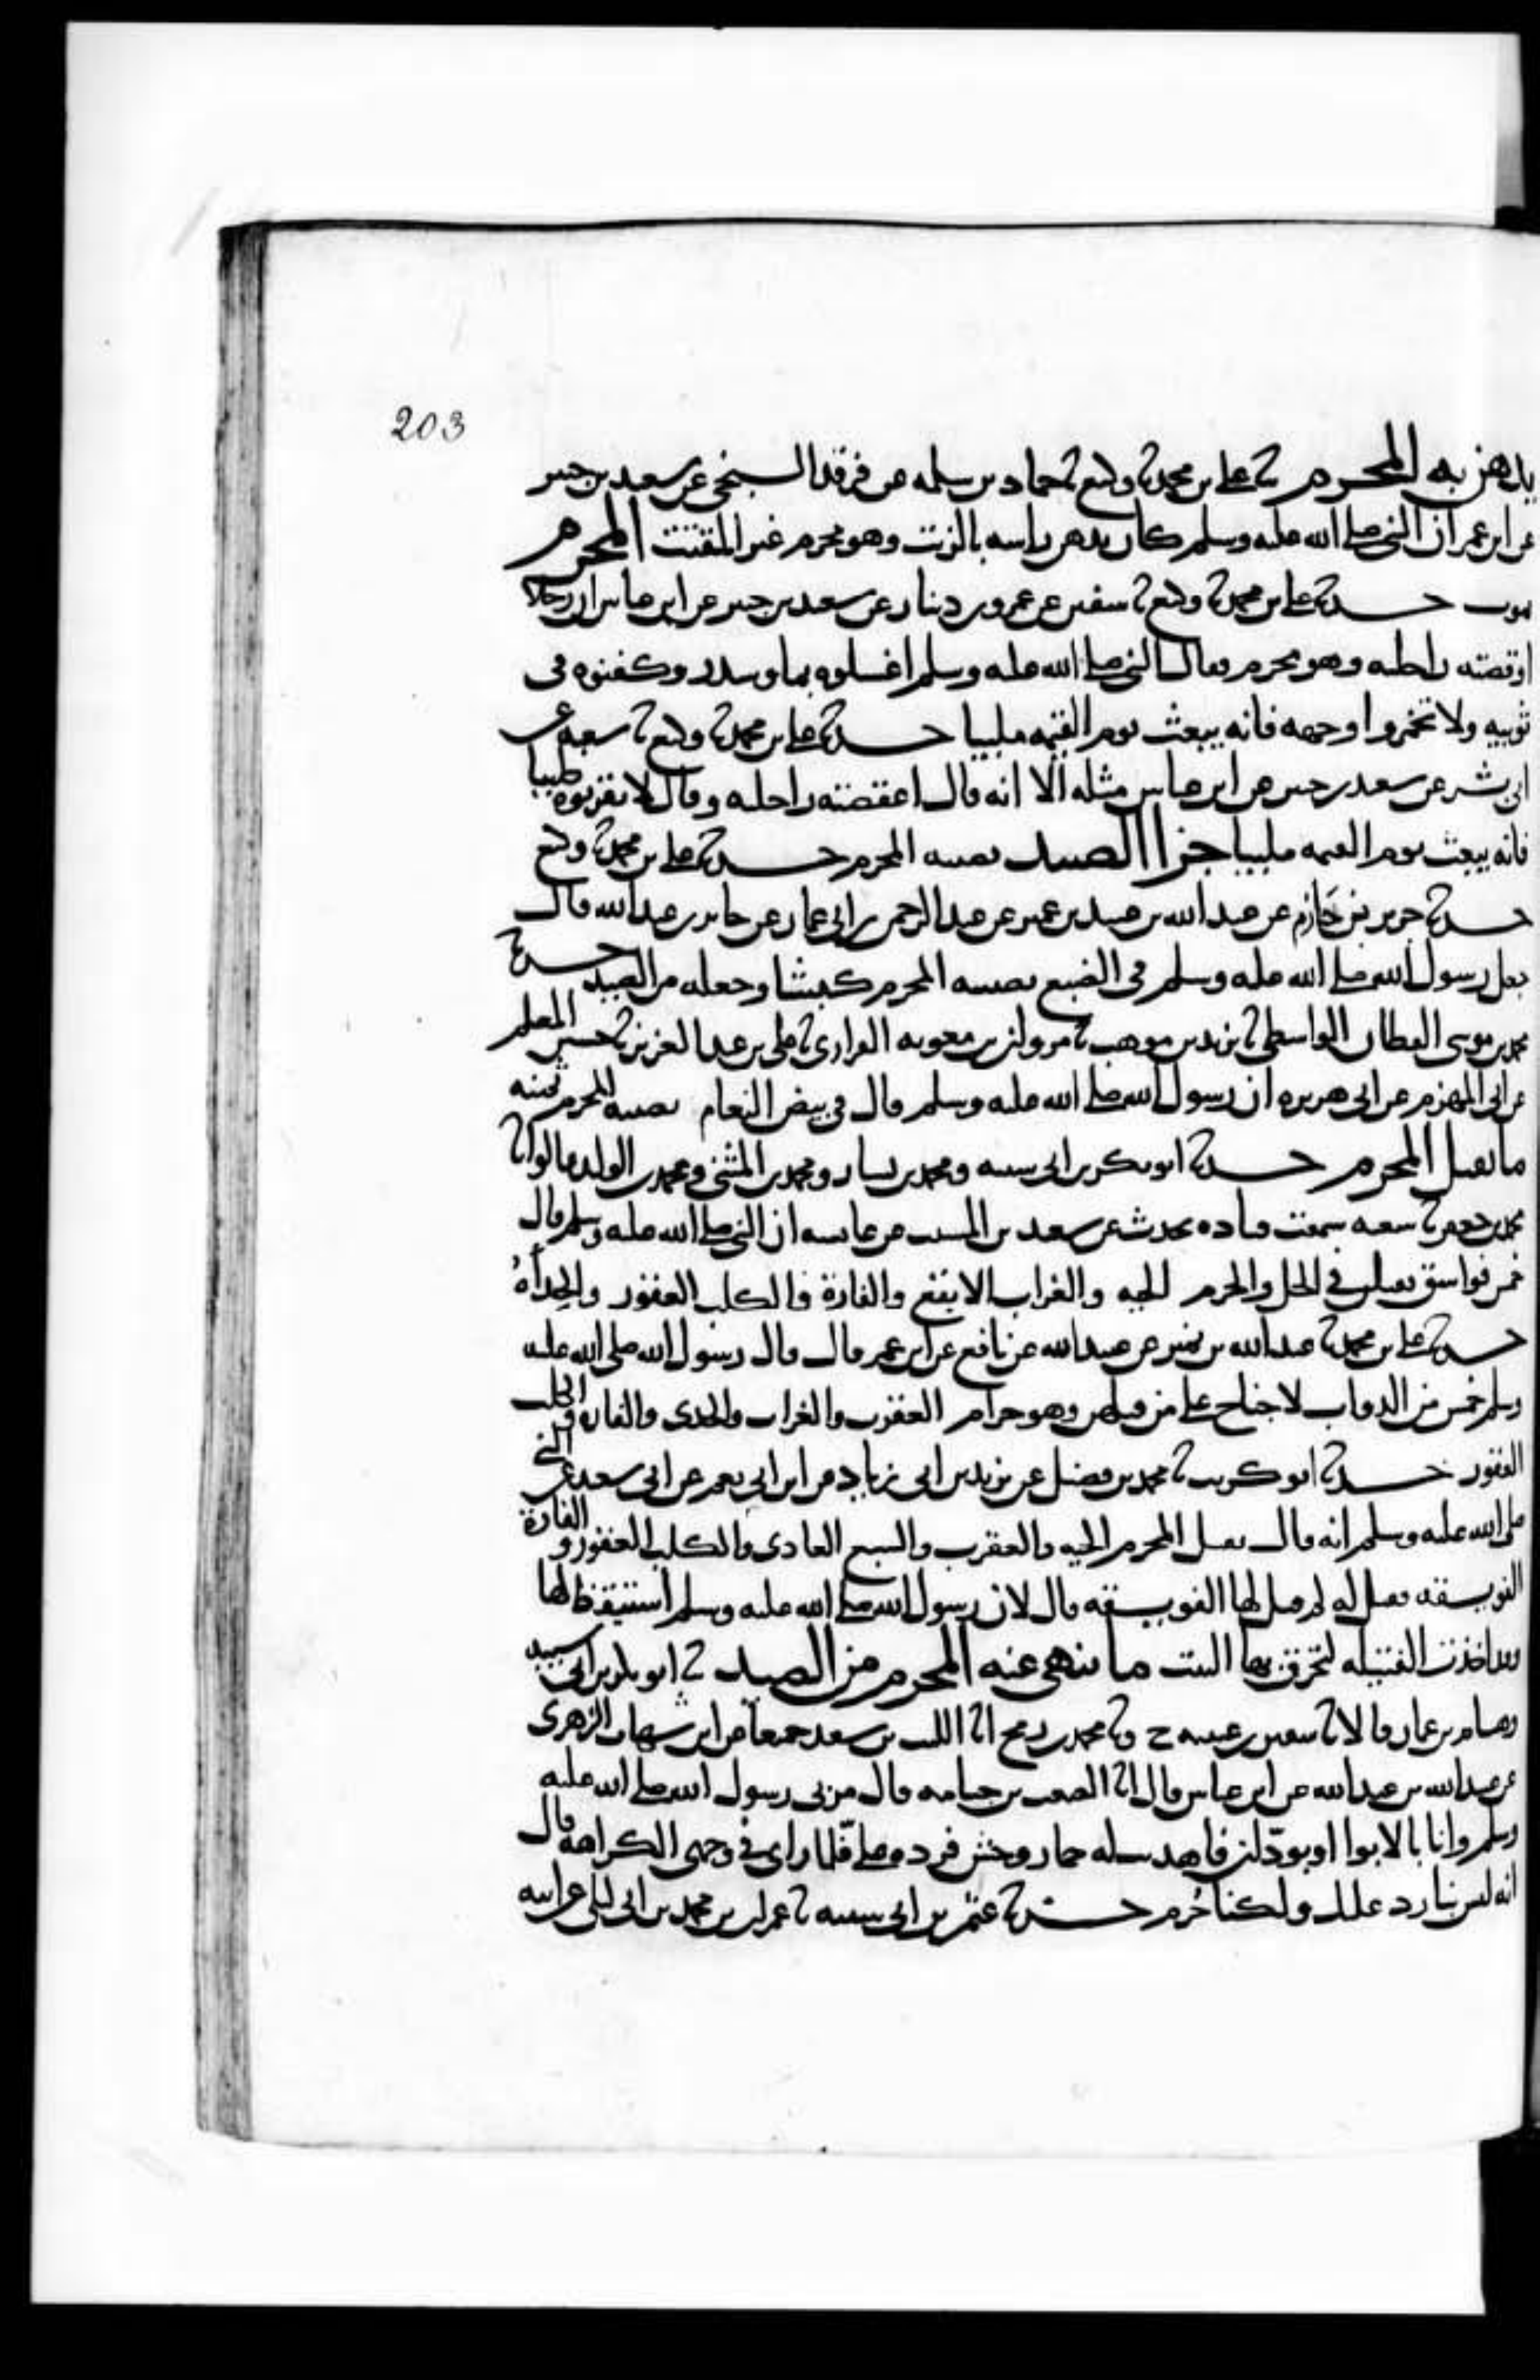 203
يدهن به المحرم ثنا علي بن محمد ثنا وكيع ثنا حماد بن سلمه عن فرقد السبخي عن سعيد بن جبير
عن ابن عمر ان النبي صلى الله عليه وسلم كان يدهن راسه بالزيت وهو محرم غير المقتت المحرم
يموت حدثنا علي بن محمد ثنا وكيع ثنا سفين عن عمرو بن دينار عن سعيد بن جبير عن ابن عباس ان رجلا
اوقصته راحلته وهو محرم فقال النبي صلى الله عليه وسلم اغسلوه بما وسدر وكفنوه في
ثوبيه ولا تخمروا وجهه فانه يبعث يوم القيمه ملبيا حدثنا علي بن محمد ثنا وكيع ثنا شعبه عن
ابي بشر عن سعيد بن جبير عن ابن عباس مثله الا انه قال اعقصته راحلته وقال لا تقربوه طيبا
فانه يبعث يوم القيمه ملبيا جزا الصيد يصيبه المحرم حدثنا علي بن محمد ثنا وكيع
حدثنا جرير بن حَازم عن عبد الله بن عبيد بن عمير عن عبد الرحمن بن ابي عمار عن جابر بن عبد الله قال
جعل رسول الله صلى الله عليه وسلم في الضبع يصيبه المحرم كبشا وجعله من الصيد حدثنا
محمد بن موسى القطان الواسطي ثنا يزيد بن موهب ثنا مروان بن معويه الفزاري ثنا علي بن عبد العزيز ثنا حسين المعلم
عن ابي المهزم عن ابي هريره ان رسول الله صلى الله عليه وسلم قال في بيض النعام يصيبه المحرم ثمنه
ما يقتل المحرم حدثنا ابو بكر بن ابي شيبه ومحمد بن بشار ومحمد بن المثنى ومحمد بن الوليد قالوا ثنا
محمد بن جعفر ثنا شعبه سمعت قتاده يحدث عن سعيد بن المسيب عن عايشه ان النبي صلى الله عليه وسلم قال
خمس فواسق يقتلن في الحل والحرم الحيه والغراب الابقع والفارة والكلب العقور والحِدأةُ
حدثنا علي بن محمد ثنا عبد الله بن نمير عن عبيد الله عن نافع عن ابن عمر قال قال رسول الله صلى الله عليه
وسلم خمس من الدواب لا جناح على من قتلهن وهو حرام العقرب والغراب والحدى والفاره والكلب
العقور حدثنا ابو كريب ثنا محمد بن فضيل عن يزيد بن ابي زياد عن ابن ابي نعم عن ابي سعيد عن النبي
صلى الله عليه وسلم انه قال يقتل المحرم الحيه والعقرب والسبع العادي والكلب العقور والفارة
الفويسقه فقيل له لم قيل لها الفويسقه قال لان رسول الله صلى الله عليه وسلم استيقظ لها
وقد اخذت الفتيله لتحرق بها البيت ما ينهى عنه المحرم من الصيد ثنا ابو بكر بن ابي شيبه
وهشام بن عمار قالا ثنا سفين بن عيينه ح وثنا محمد بن رمح انا الليث بن سعد جميعا عن ابن شهاب الزهري
عن عبيد الله بن عبد الله عن ابن عباس قال انا الصعب بن جثامه قال مر بي رسول الله صلى الله عليه
وسلم وانا بالابوا او بودّان فاهديت له حمار وحش فرده علي فلما راى في وجهي الكراهه قال
انه ليس بنا رد عليك ولكنا حُرم حدثنا عثمن بن ابي شيبه ثنا عمران بن محمد بن ابي ليلى عن ابيه